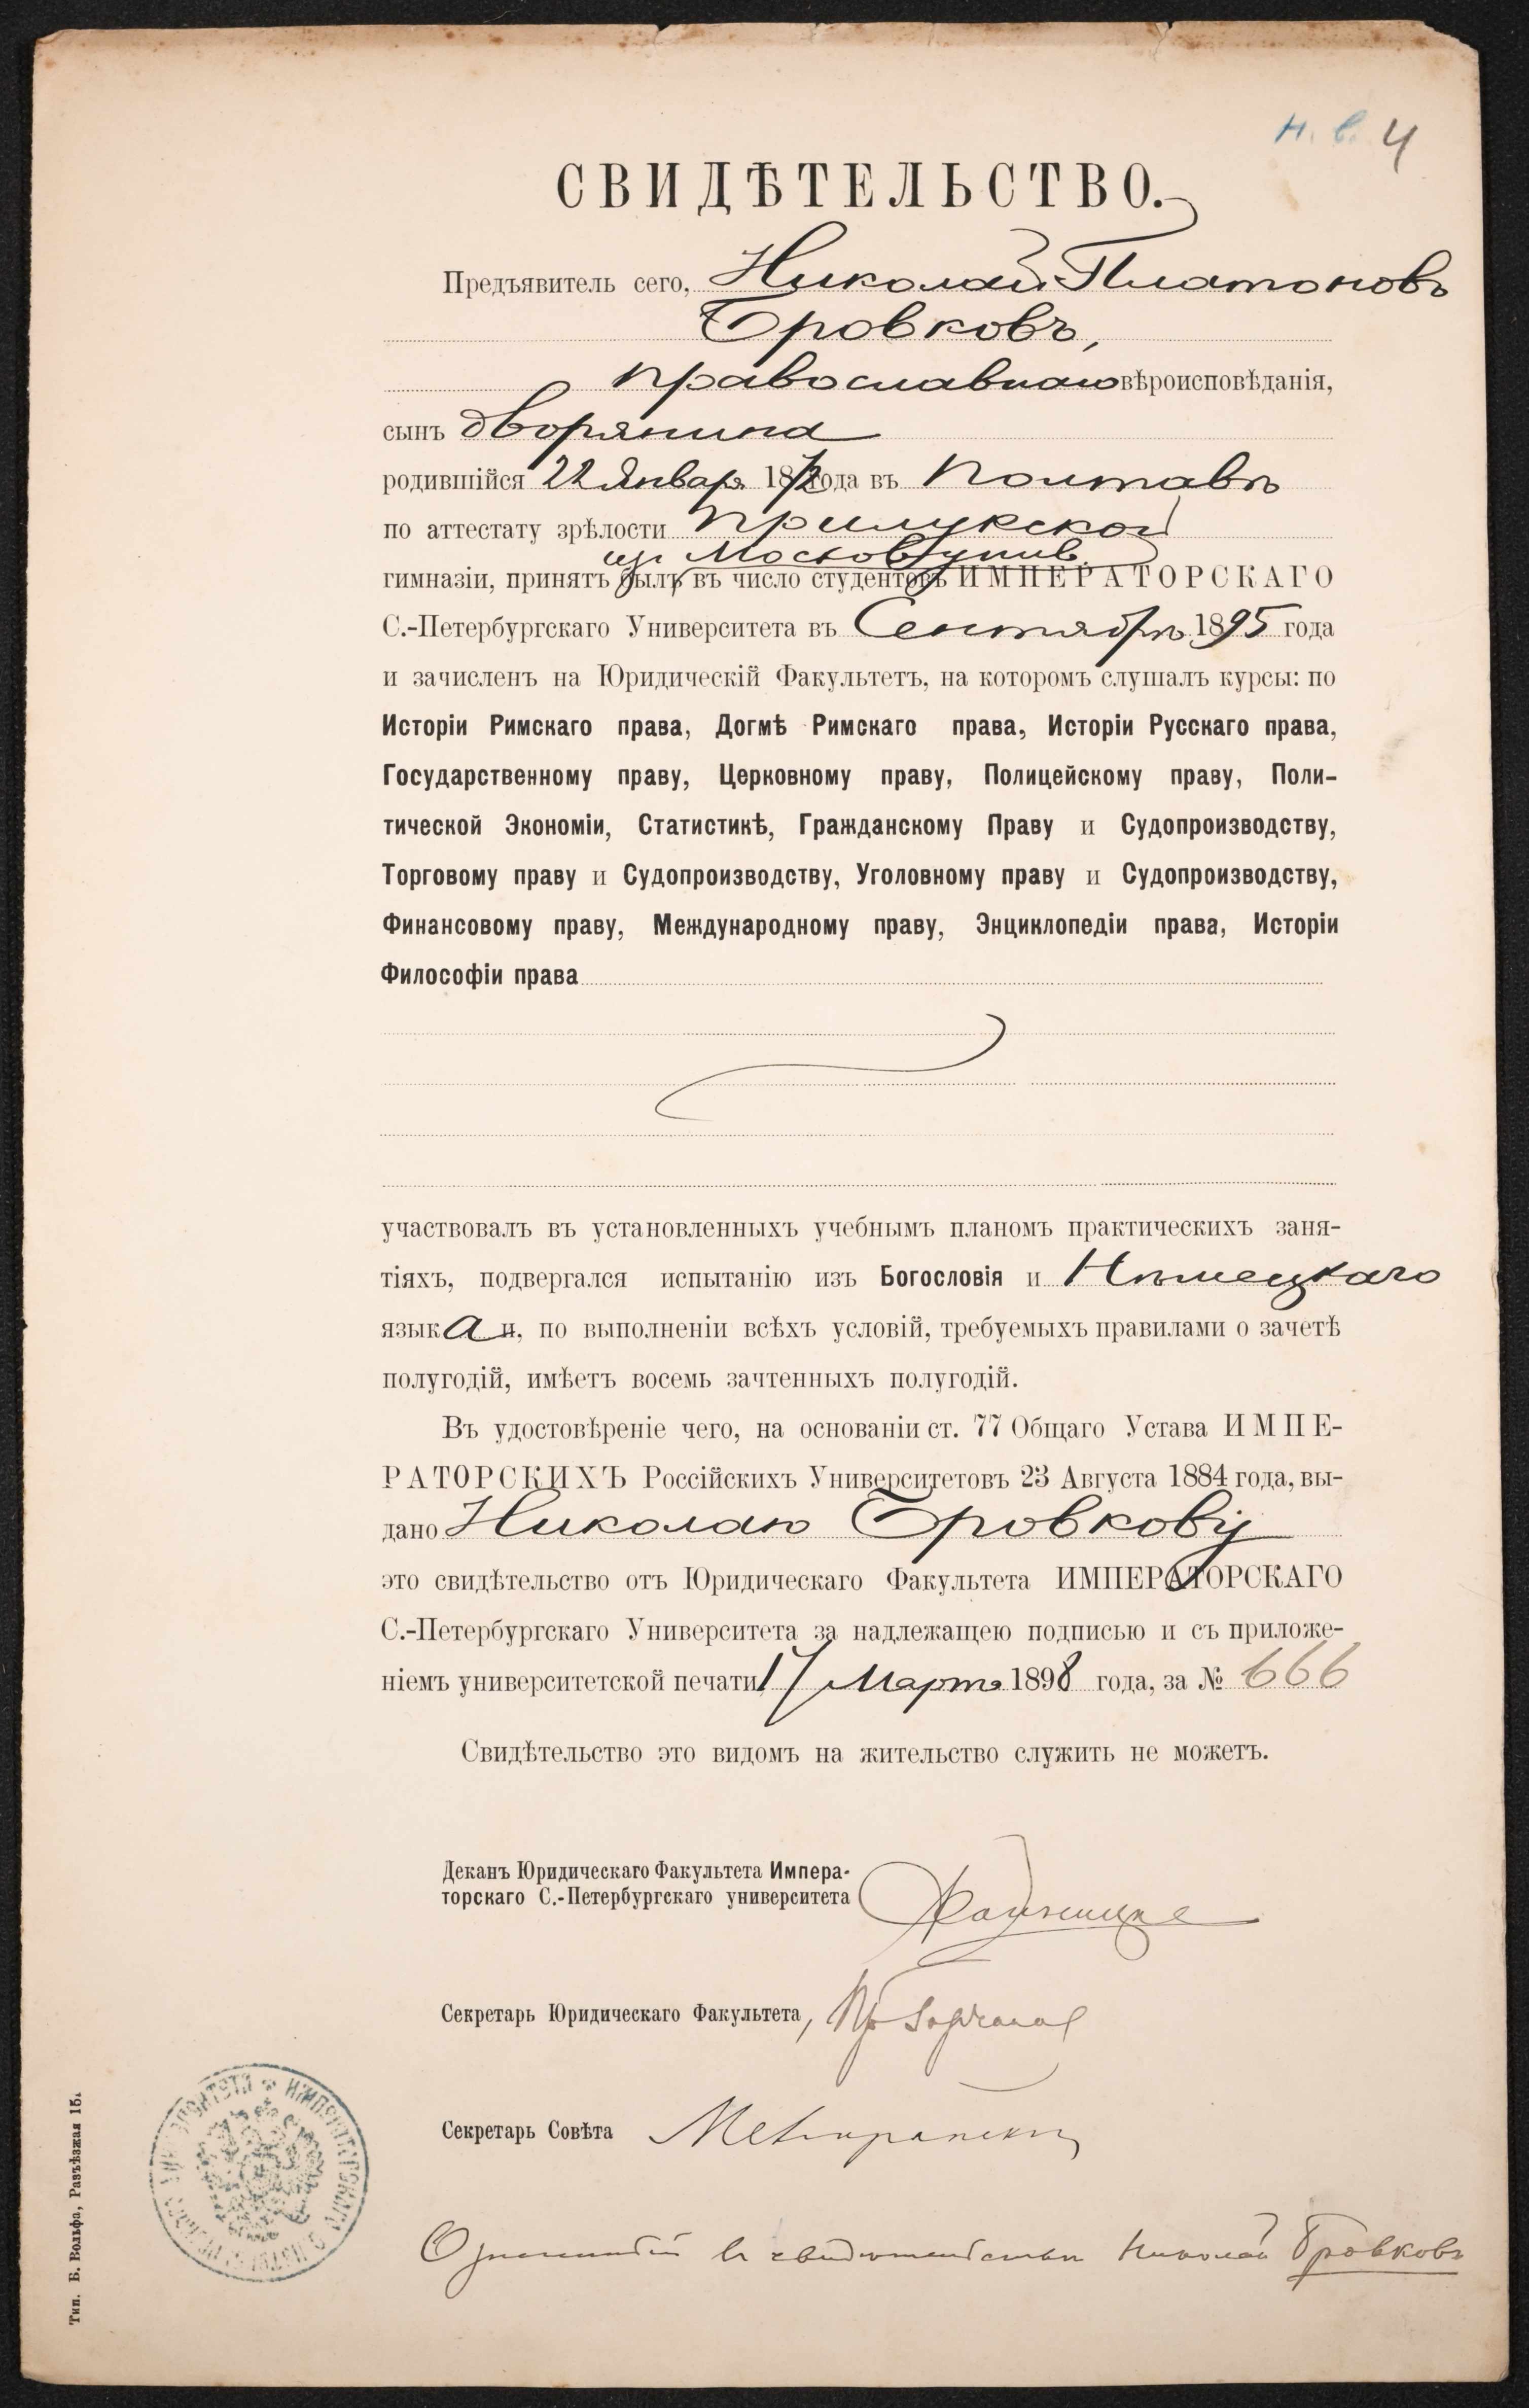 н. в. 4
СВИДѢТЕЛЬСТВО.
Предъявитель сего, Николай Платоновъ
Бровковъ,
православнаго вѣроисповѣданія,
сынъ дворянина
родившійся 22 Января 187 года въ Полтавѣ
по аттестату зрѣлости Прилукской
из Москов. унив.
гимназіи, принятъ былъ въ число студентовъ ИМПЕРАТОРСКАГО
С.-Петербургскаго Университета въ Сентябрѣ 1895 года
и зачисленъ на Юридическій Факультетъ, на которомъ слушалъ курсы: по
Исторіи Римскаго права, Догмѣ Римскаго права, Исторіи Русскаго права,
Государственному праву, Церковному праву, Полицейскому праву, Поли-
тической Экономіи, Статистикѣ, Гражданскому Праву и Судопроизводству,
Торговому праву и Судопроизводству, Уголовному праву и Судопроизводству,
Финансовому праву, Международному праву, Энциклопедіи права, Исторіи
Философіи права
участвовалъ въ установленныхъ учебнымъ планомъ практическихъ заня-
тіяхъ, подвергался испытанію изъ Богословія и Нѣмецкаго
языка и, по выполненіи всѣхъ условій, требуемыхъ правилами о зачетѣ
полугодій, имѣетъ восемь зачтенныхъ полугодій.
Въ удостовѣреніе чего, на основаніи ст. 77 Общаго Устава ИМПЕ-
РАТОРСКИХЪ Россійскихъ Университетовъ 23 Августа 1884 года, вы-
дано Николаю Бровкову
это свидѣтельство отъ Юридическаго Факультета ИМПЕРАТОРСКАГО
С.-Петербургскаго Университета за надлежащею подписью и съ приложе-
ніемъ университетской печати 17 Марта 1898 года, за № 666
Свидѣтельство это видомъ на жительство служить не можетъ.
Деканъ Юридическаго Факультета Импера-
торскаго С.-Петербургскаго университета
Секретарь Юридическаго Факультета,
Секретарь Совѣта
въ свидѣтельствѣ Николай Бровковъ
Тип. Б. Вольфа, Разъѣзжая 15.